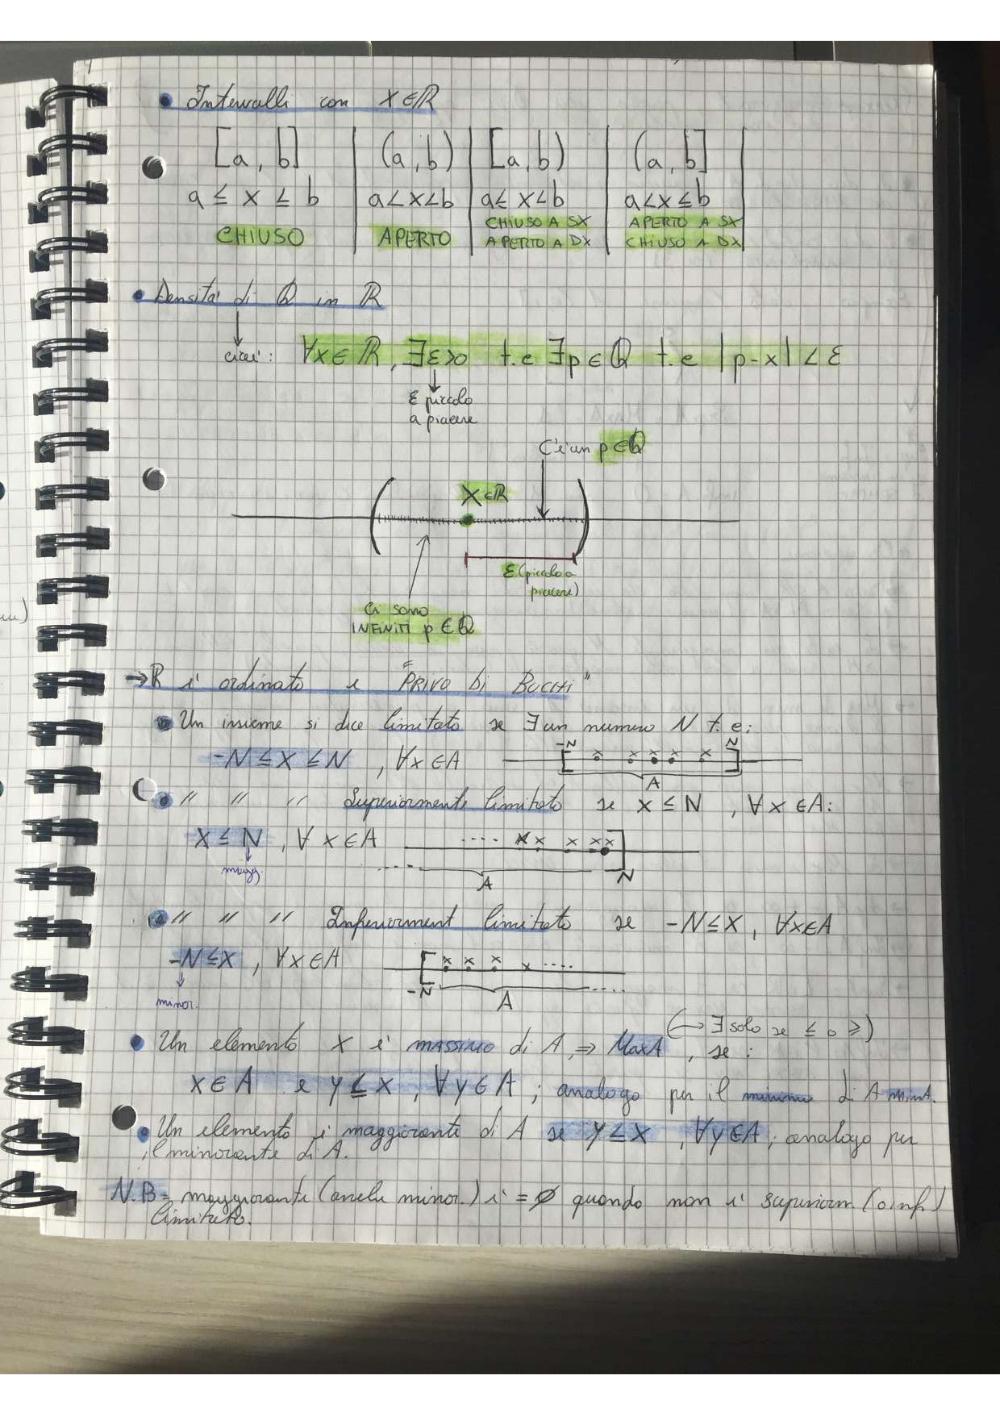 • Intervalli con X∈ℝ
[a, b] (a, b) [a, b) (a, b]
a ≤ x ≤ b a<x<b a≤x<b a<x≤b
CHIUSO APERTO CHIUSO A SX APERTO A SX
APERTO A DX CHIUSO A DX
• Densità di Q in ℝ
cioè: ∀x∈ℝ, ∃ε>0 t.c ∃p∈Q t.c |p-x| < ε
ε piccolo
a piacere
C'è un p∈Q
X∈ℝ
ε (piccolo a
piacere)
Ci sono
INFINITI p∈Q
→ ℝ è ordinato e "PRIVO DI BUCHI"
• Un insieme si dice limitato se ∃ un numero N t.c:
-N ≤ X ≤ N , ∀x∈A
-N N
A
• " " " Superiormente limitato se x ≤ N , ∀x∈A:
X ≤ N , ∀x∈A
magg.
A N
• " " " Inferiorment limitato se -N≤X, ∀x∈A
-N≤X , ∀x∈A
minor.
-N A
(→ ∃ solo se ≤ o ≥)
• Un elemento X è MASSIMO di A, ⇒ MaxA , se:
x∈A e y≤x , ∀y∈A ; analogo per il minimo di A minA.
• Un elemento è maggiorante di A se y≤x , ∀y∈A, analogo per
il minorante di A.
N.B= maggiorante (anche minor.) è = ∅ quando non è superiorm (o inf.)
limitato.